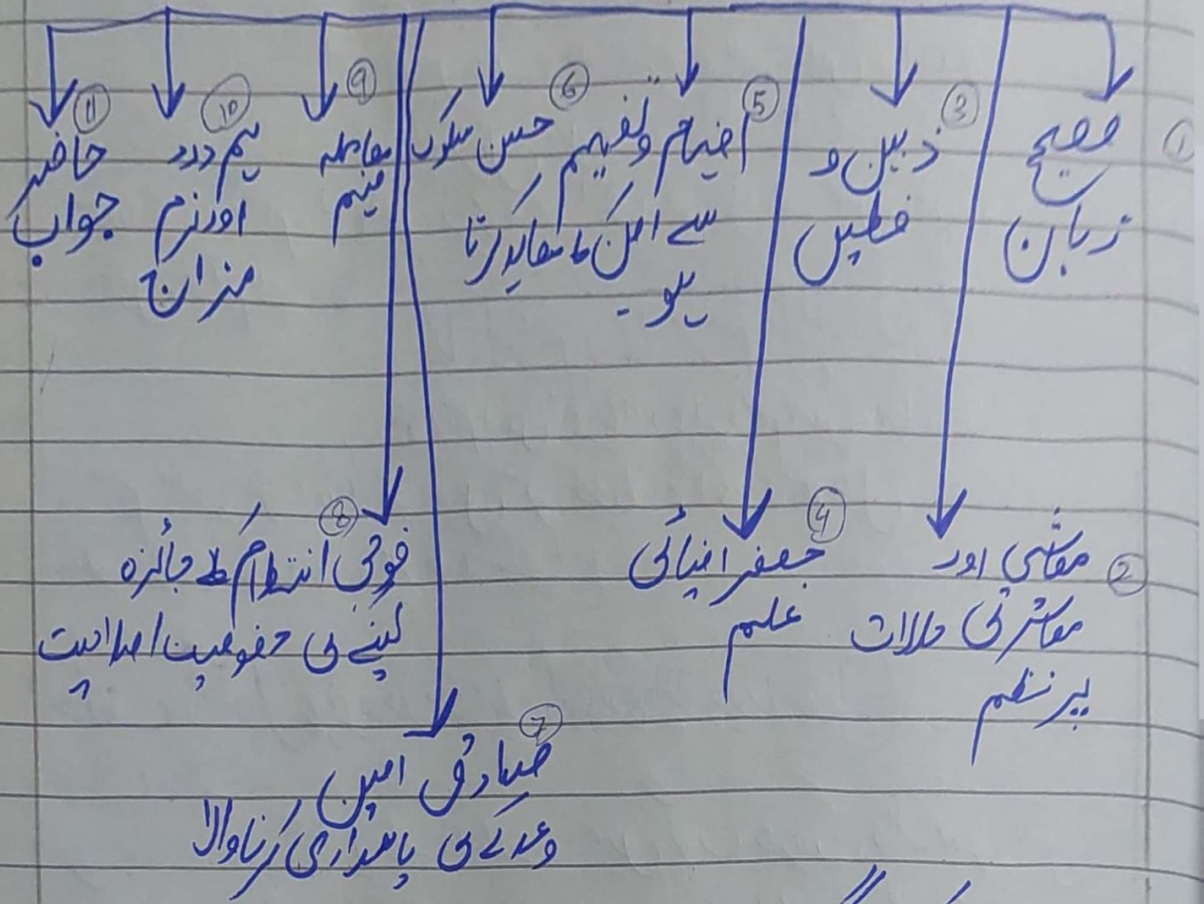 ①
فصیح
زبان
②
معاشی اور
معاشرتی حالات
پر نظر
③
ذہین و
فطین
④
جغرافیائی
علم
⑤
افہام و تفہیم
سے امن کا معاہدہ کرتا
ہو۔
⑥
حسن سلوک
⑦
صادق امین
وعدے کی پاسداری کرنا والا
⑧
فوجی انتظام کا جائزہ
لینے کی خصوصیت / صلاحیت
⑨
معاملہ
فہم
⑩
ہم درد
اور نرم
مزاج
⑪
حاضر
جواب